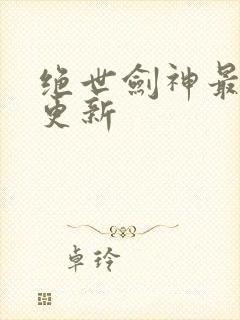 绝世劍神最
更新
卓玲